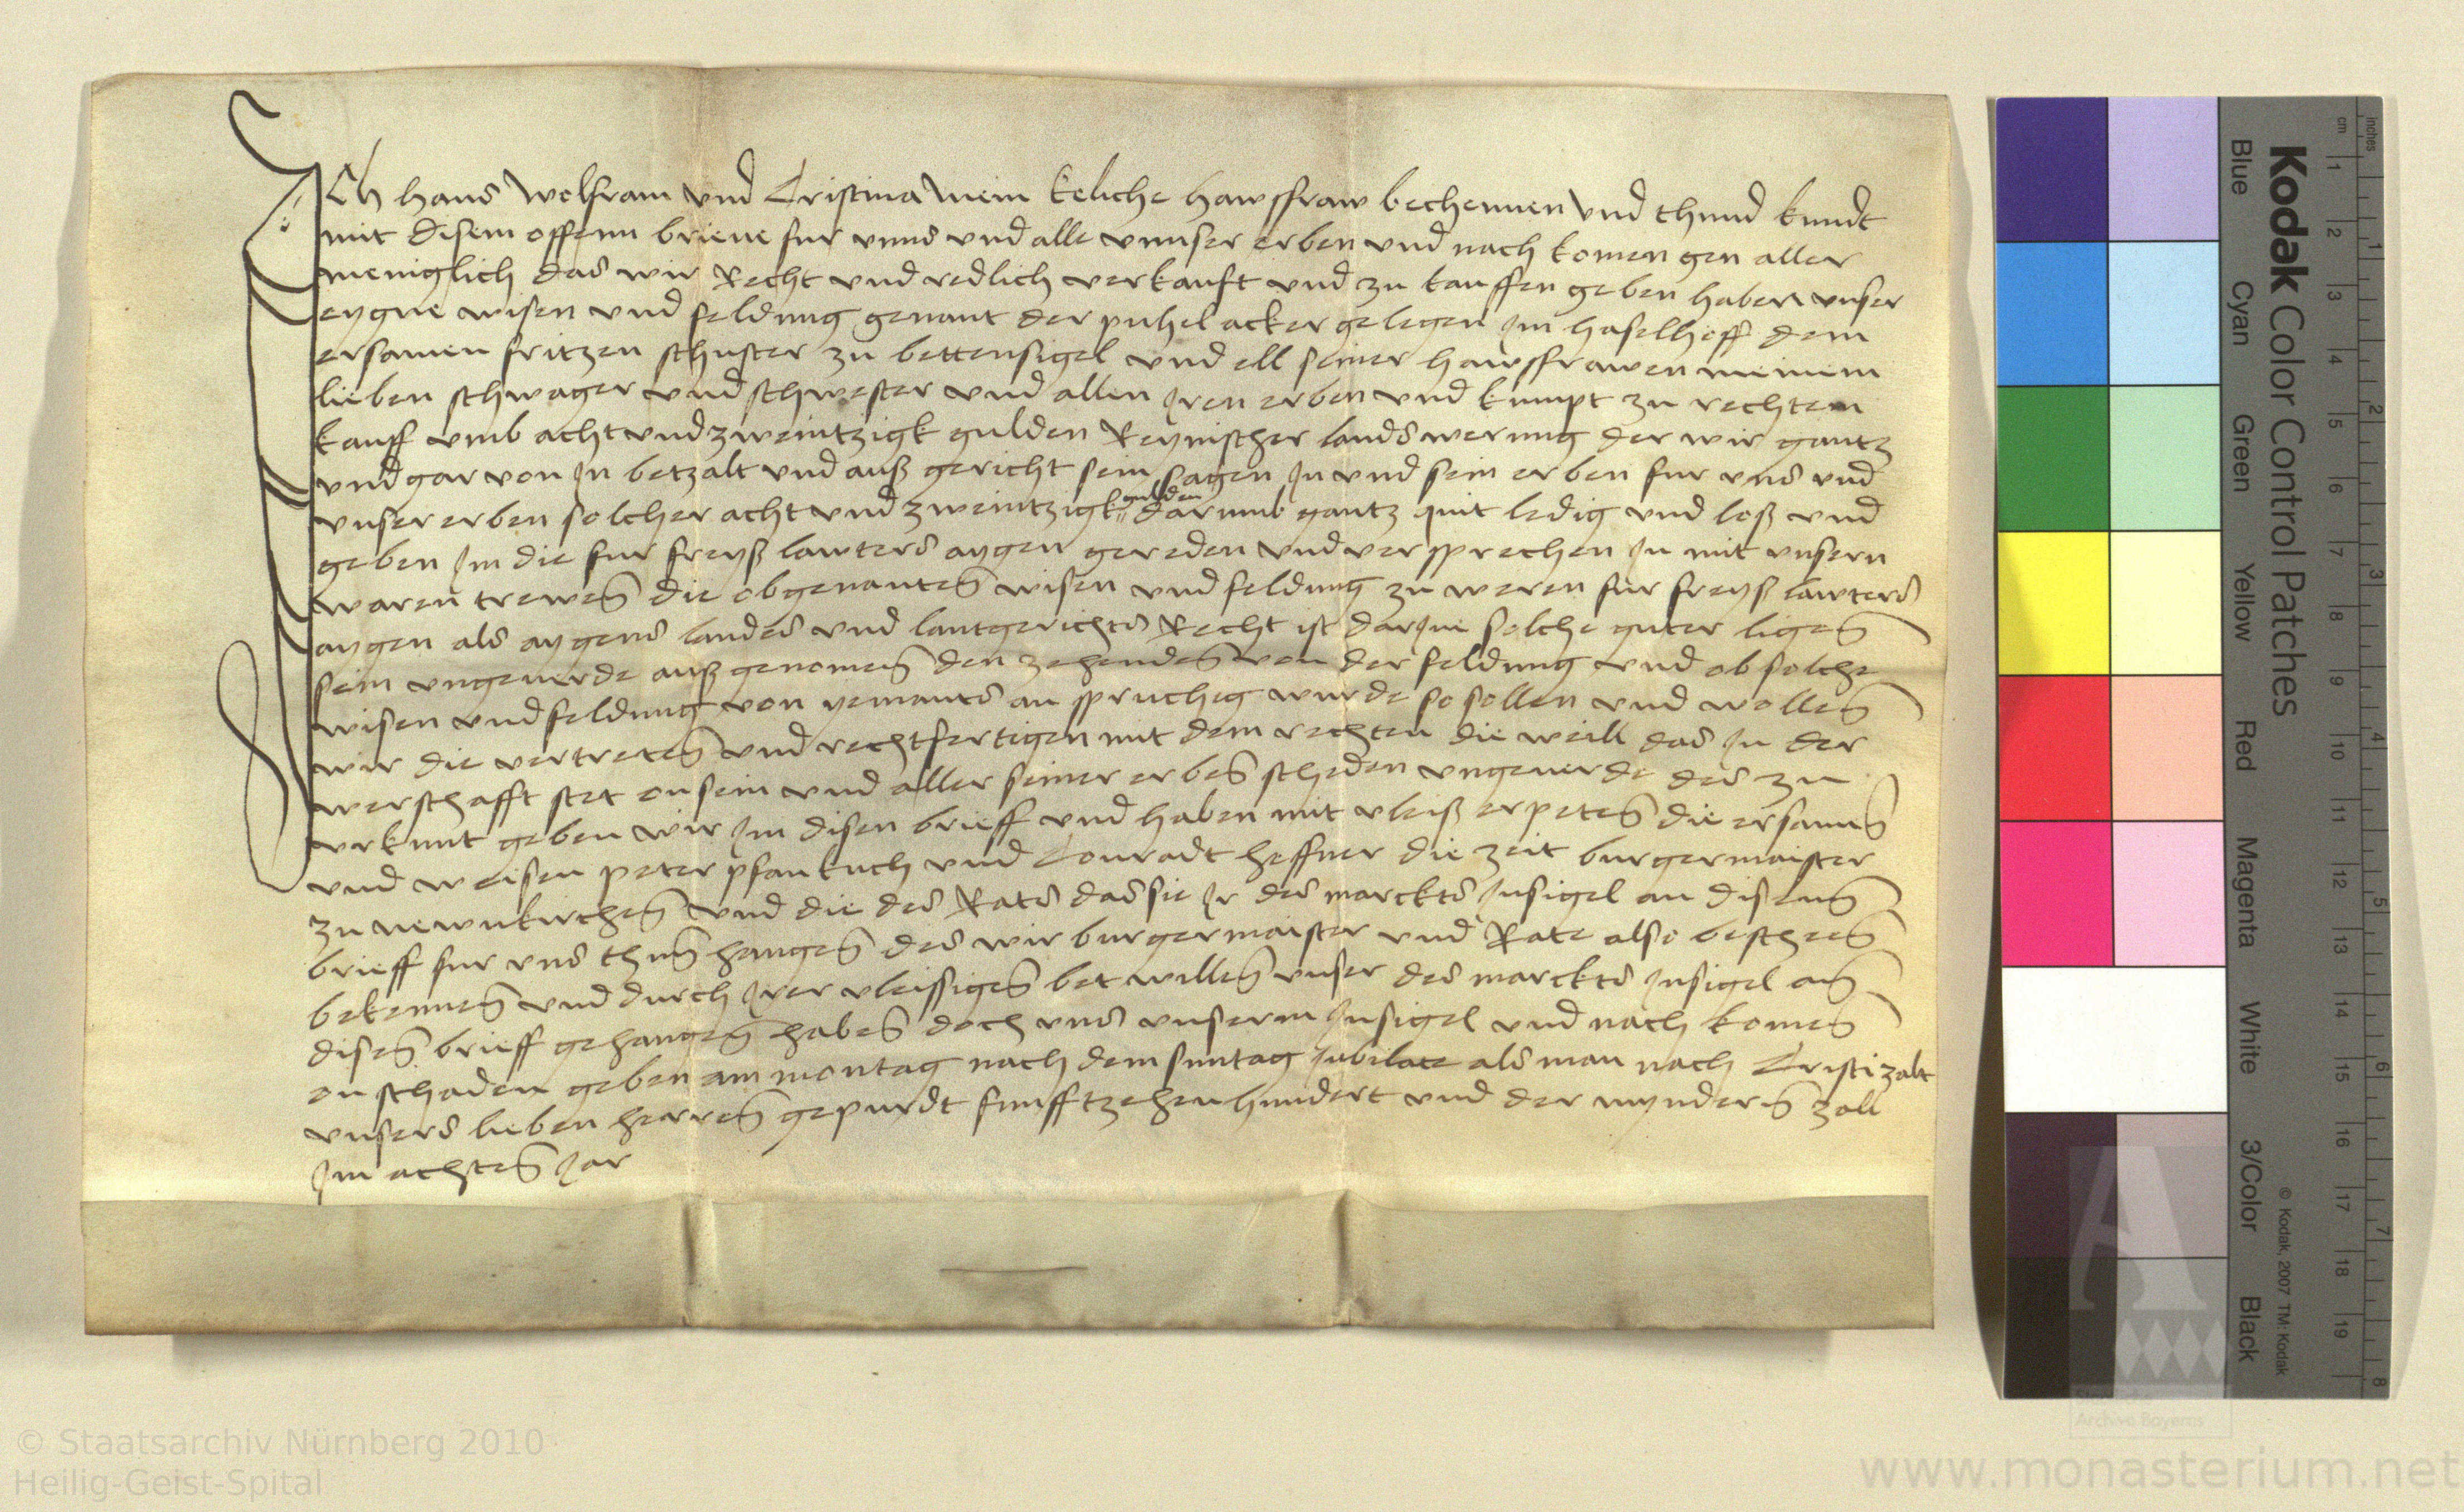 Ich hans Wolfram Vnd Cristina Mein Eeliche hawsfraw bechennen Vnd thund kundt
mit disem offenn brieue fur vnns vnd alle vnnser erben vnd nach komen gen aller
meniglich das wir Recht vnd redlich verkauft vnd zu kauffen geben haben vnser
eygne wisen vnd feldung genant der puhel acker gelegen Im haselhoff dem
ersamen fritzen schuster zu bettensigel vnd ell seiner hawsfrawen meinem
lieben schwager vnd schwester vnd allen Iren erben vnd kumpt zu rechtem
kauff vmb acht vnd zweintzigk gulden Reynischer landswerung der wir gantz
vnd gar von In betzalt vnd auß gericht sein sagen In vnd sein erben fur vns vnd
vnser erben solcher acht vnd zweintzigk gulden darumb gantz quit ledig vnd loß vnd
geben Im die fur freyß lawters aygen gereden vnd versprechen In mit vnsern
waren trewen die obgenanten wisen vnd feldung zu weren fur freyß lawters
aygen als aygens landes vnd lantgerichts Recht ist darIne solche guter ligen
sein vngeuerde auß genomen den zehenden von der feldung vnd ob solche
wisen vnd feldung von yemants an spruchig wurde so sollen vnd wollen
wir die vertreten vnd rechtfertigen mit dem rechten die weill das In der
werschafft stet on sein vnd aller seiner erben scheden vngeuerde des zu
vrkunt geben wir Im disen brieff vnd haben mit vleiß erpeten die ersamen
vnd weisen peter pfankuch vnd Conradt heffner die zeit burgermaister
zu newnkirchen vnd die des Rats das sie Ir des marckts Insigel an disenn
brieff fur vns thun hangen des wir burgermaister vnd Rate also bescheen
bekennen vnd durch Irer vleissigen bet willen vnser des marckts Insigel an
disen brieff gehangen haben doch vns vnserm Insigel vnd nach komen
on schaden geben am montag nach dem suntag Jubilate als man nach Cristi zalt
vnsers lieben herren gepurdt funfftzehenhundert vnd der mynderen zall
Im achten Jar
Kodak Color Control Patches
Blue Cyan Green Yellow Red Magenta White 3/Color Black
© Kodak, 2007 TM: Kodak
inches 1 2 3 4 5 6 7 8
cm 1 2 3 4 5 6 7 8 9 10 11 12 13 14 15 16 17 18 19
© Staatsarchiv Nürnberg 2010
Heilig-Geist-Spital
Archive Bayerns
www.monasterium.net